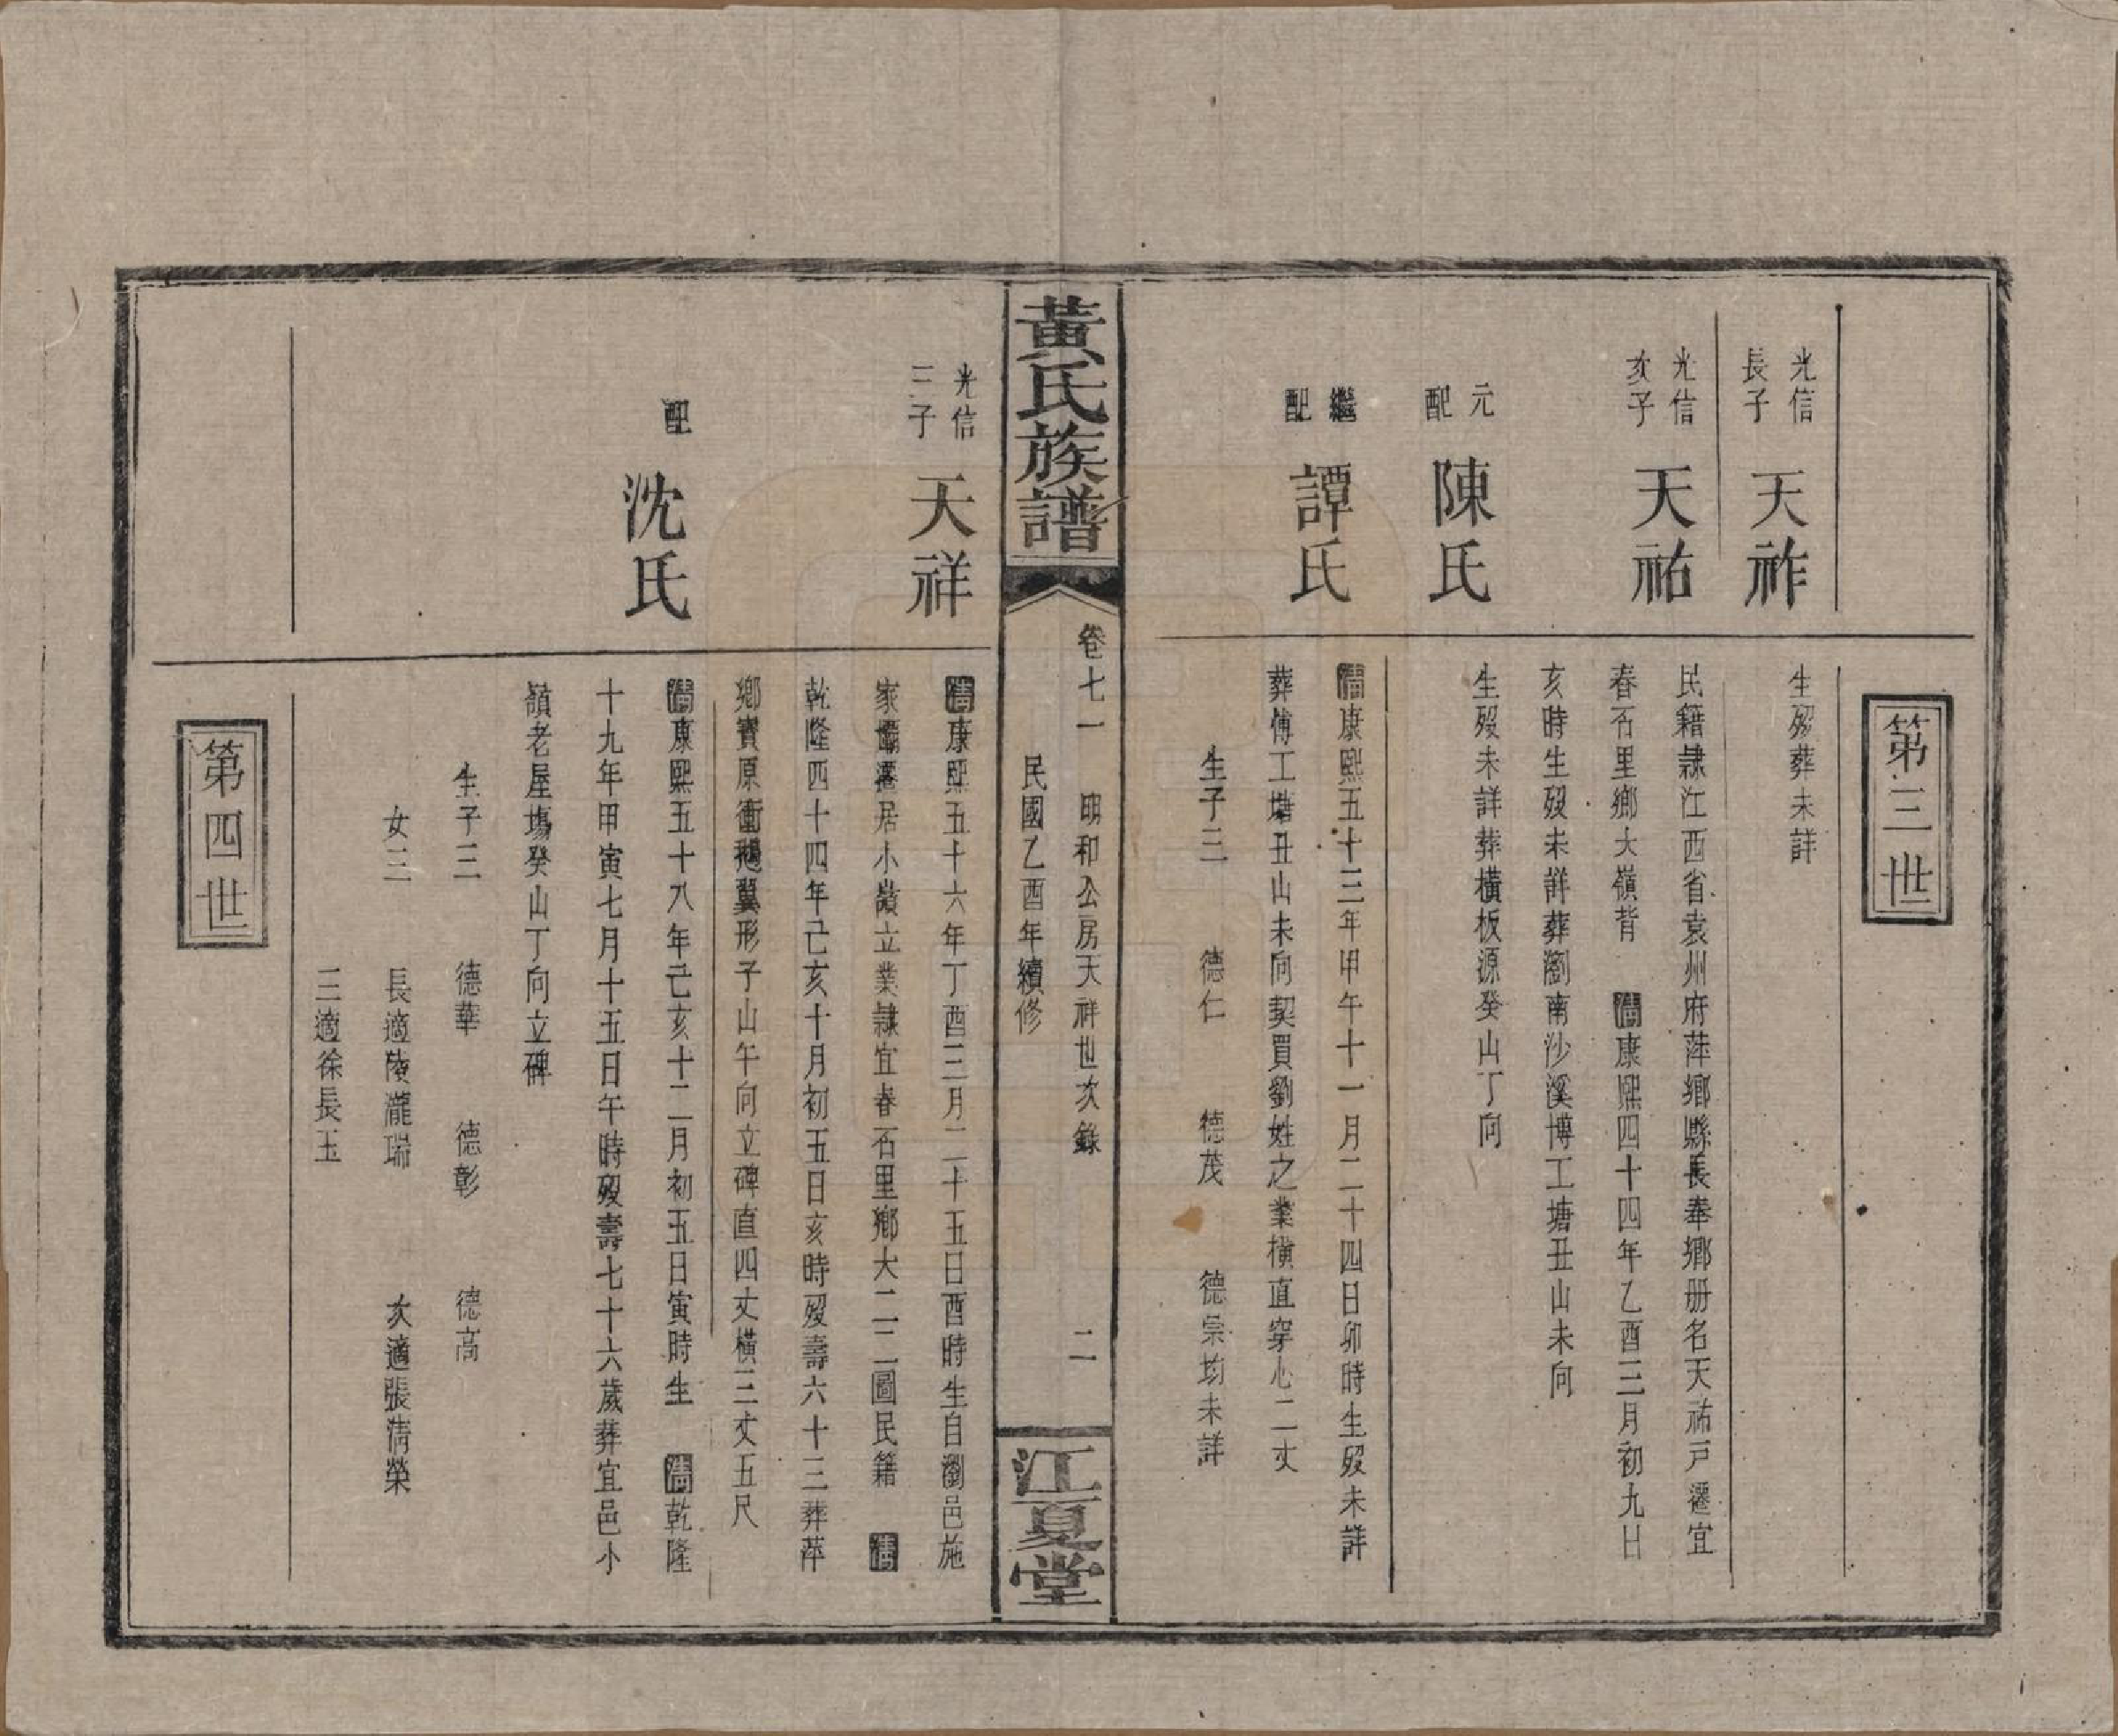 第三世
光信
長子
天祚
生殁葬未詳
光信
次子
天祐
民籍隷江西省袁州府萍鄉縣長奉鄉册名天祐戸遷宜
春石里鄉大嶺背 清康熙四十四年乙酉三月初九日
亥時生殁未詳葬瀏南沙溪博工塘丑山未向
元
配
陳氏
生殁未詳葬橫板源癸山丁向
繼
配
譚氏
清康熙五十三年甲午十一月二十四日卯時生殁未詳
葬傅工塘丑山未向契買劉姓之業橫直穿心二丈
生子三 德仁 德茂 德崇均未詳
黃氏族譜
卷七一 明和公房天祥世次錄 二
民國乙酉年續修
江夏堂
光信
三子
天祥
清康熙五十六年丁酉三月二十五日酉時生自瀏邑施
家壩遷居小嶺立業隷宜春石里鄉大二二圖民籍 清
乾隆四十四年己亥十月初五日亥時殁壽六十三葬萍
鄉寶原衝鵝翼形子山午向立碑直四丈橫三丈五尺
配
沈氏
清康熙五十八年己亥十二月初五日寅時生 清乾隆
十九年甲寅七月十五日午時殁壽七十六歲葬宜邑小
嶺老屋塲癸山丁向立碑
生子三 德華 德彰 德高
女三 長適陵瀧瑞 次適張清榮
三適徐長玉
第四世